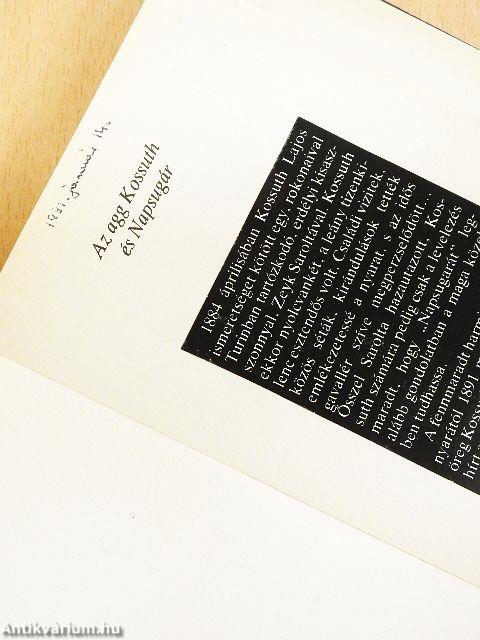 1991. január 14.
Az agg Kossuth
és Napsugár
1884 áprilisában Kossuth Lajos
ismeretséget kötött egy, rokonaival
Turinban tartózkodó, erdélyi kisasz-
szonnyal, Zeyk Saroltával. Kossuth
ekkor nyolcvankét, a leány tizenki-
lenc esztendős volt. Családi vizitek,
közös séták, kirándulások tették
emlékezetessé a nyarat, s az idős
gavallér szíve megperzselődött...
Ősszel Sarolta hazautazott, Kos-
suth számára pedig csak a levelezés
maradt, hogy „Napsugarát” leg-
alább gondolatban a maga köze-
ben tudhassa.
A fennmaradt harm
nyarától 1891 m
öreg Kossu
Antikvárium.hu